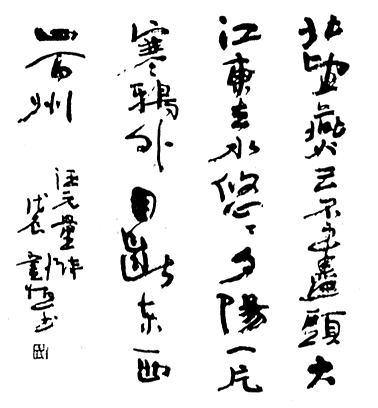 北望燕云不盡頭大
江東去水悠〻夕陽一片
寒鴉外目斷东西
四百州
汪元量詩
戊辰
书